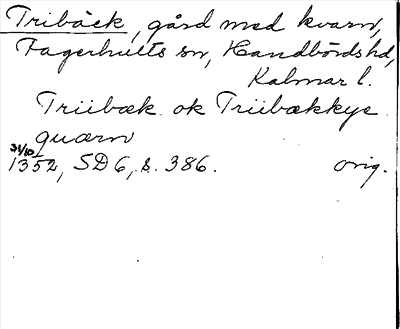 Tribäck, gård med kvarn,
Fagerhults sn, Handbörds hd,
Kalmar l.
Triibæk ok Triibækkys
quærn
31/10
1352, SD 6, s. 386. orig.